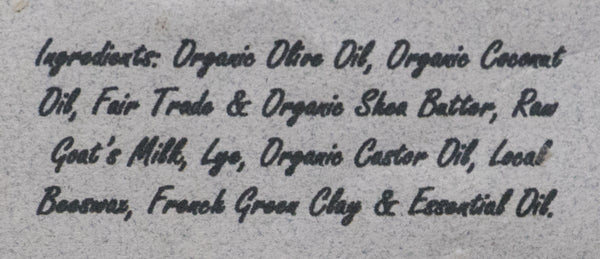 Ingredients: Organic Olive Oil, Organic Coconut
Oil, Fair Trade & Organic Shea Butter, Raw
Goat's Milk, Lye, Organic Castor Oil, Local
Beeswax, French Green Clay & Essential Oil.